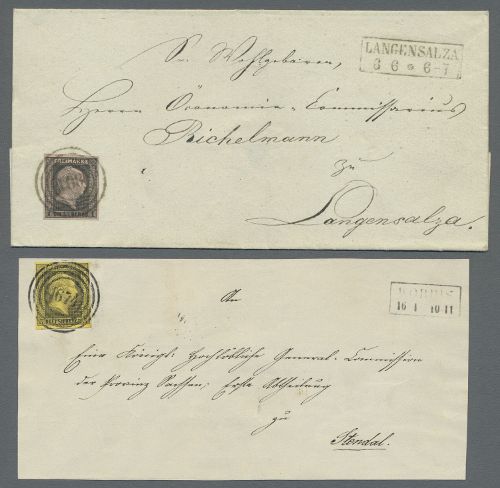 LANGENSALZA
6 6 * 6-7
Sr. Wohlgeboren,
Herrn Öconomie-Commissarius
Richelmann
zu
Langensalza.
FREIMARKE
WORBIS
16 4 10-11
1674
An
Eine Königl: Hochlöbliche General-Commission
der Provinz Sachsen; Erste Abtheilung
zu
Stendal.